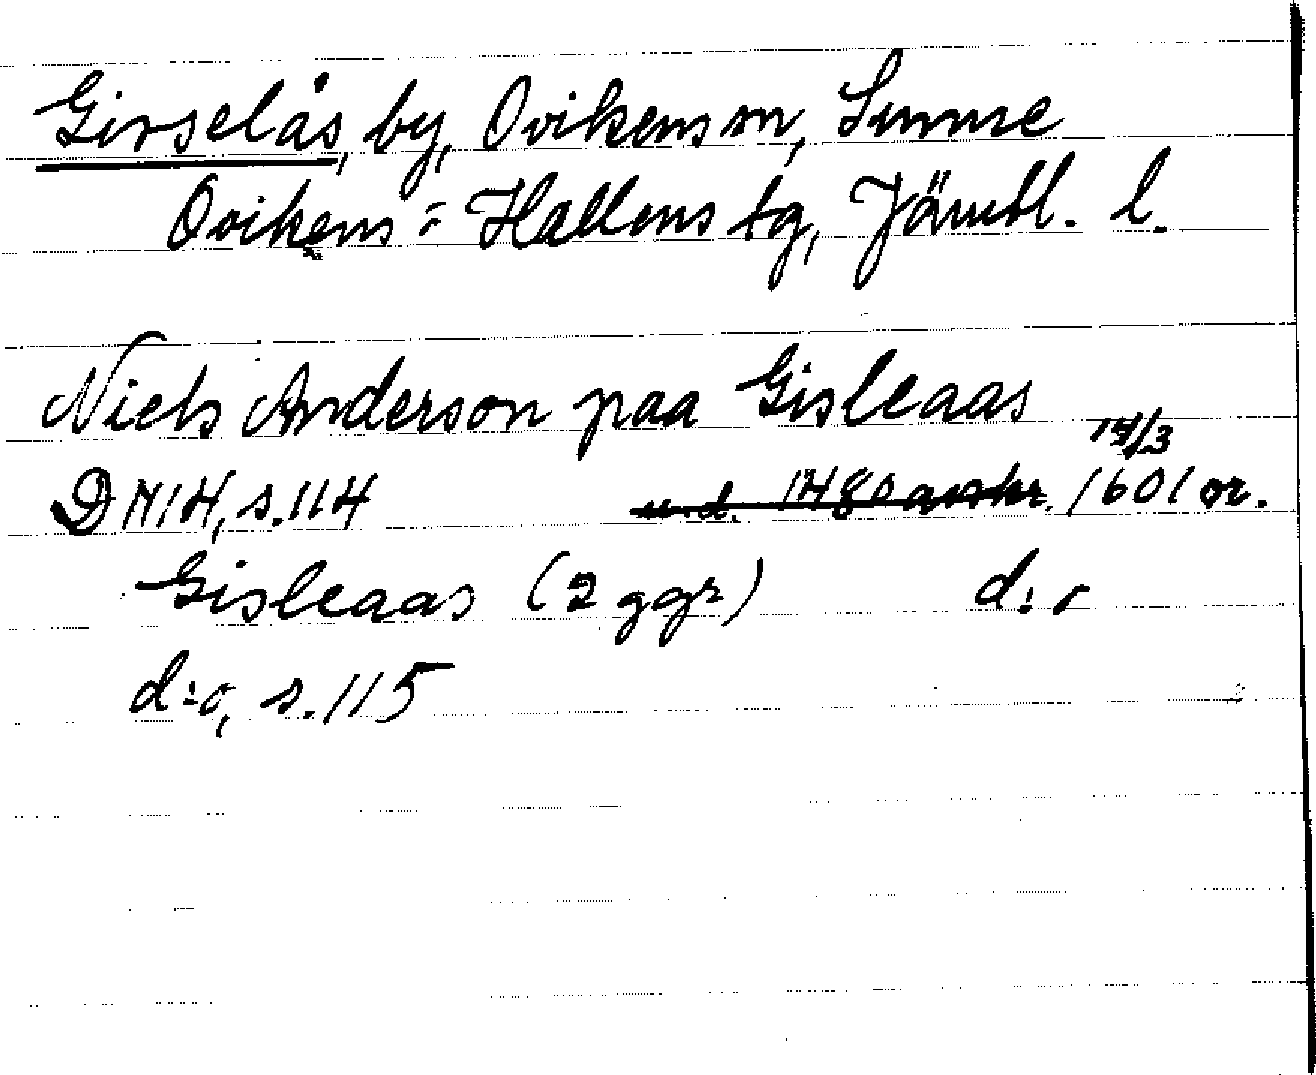 Girselås, by, Ovikens sn, Sunne
Ovikens = Hallens tg, Jämtl. l.
Niels Anderson paa Gisleaas
14/3
DN 14, s. 114 u.d. 1480 avskr. 1601 or.
Gisleaas (2 ggr) d:o
d:o, s. 115